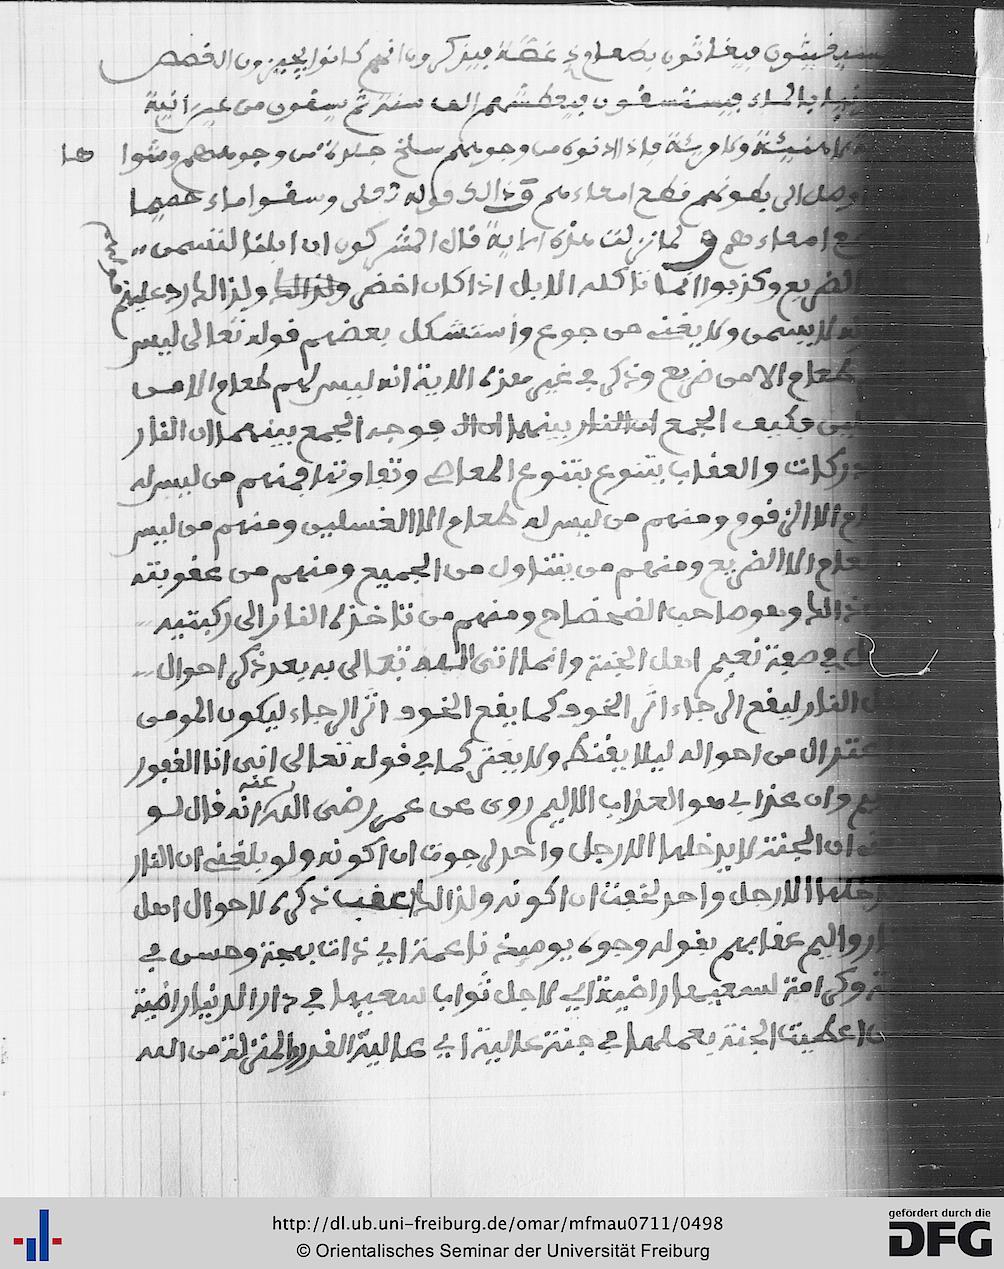 فيغاثون بطعام ذي غصة فيذكرون انهم كانوا يجيزون الغصص
بالماء فيستسقون فيعطشهم الف سنة ثم يسقون من عين انية
لا هنيئة ولا مريئة فاذا ادنوه من وجوههم سلخ جلدة من وجوههم وشوا ها
وصل الى بطونهم قطع امعاءهم فذالك قوله تعلى وسقوا ماء حميما
امعاءهم و لما نزلت هذه الاية قال المشركون ان ابلنا لتسمن
الضريع وكذبوا انما تاكله الابل اذا كان اخضر ولذالك رد عليهم
لا يسمن ولا يغنى من جوع واستشكل بعضهم قوله تعالى ليس
طعام الا من ضريع وذكر في غير هذه الاية انه ليس لهم طعام الا من
فكيف الجمع بينهما فوجه الجمع بينهما ان النار
دركات والعقاب يتنوع بتنوع المعاصى وتفاوتها فمنهم من ليس له
الا الزقوم ومنهم من ليس له طعام الا الغسلين ومنهم من ليس
طعام الا الضريع ومنهم من يتناول من الجميع ومنهم من عقوبته
وهو صاحب الضحضاح ومنهم من تاخذه النار الى ركبتيه
في صفة نعيم اهل الجنة وانما اتى الله تعالى به بعد ذكر احوال
النار ليقع الرجاء اثر الخوف كما يقع الخوف اثر الرجاء ليكون المومن
من احواله ليلا يقنط ولا يغتر كما في قوله تعالى انى انا الغفور
وان عذابي هو العذاب الاليم روى عن عمر رضى الله عنه انه قال لو
ان الجنة لا يدخلها الا رجل واحد لرجوت ان اكونه ولو بلغنى ان النار
الا رجل واحد لخفت ان اكونه ولذالك عقب ذكره لاحوال اهل
واليم عقابهم بقوله وجوه يوميذ ناعمة اي ذات بهجة وحسن في
وكرامة لسعيها راضية اي لاجل ثواب سعيها في دار الدنيا راضية
اعطيت الجنة بعملها في جنة عالية اي عالية القدر والمنزلة من الله
http://dl.ub.uni-freiburg.de/omar/mfmau0711/0498
© Orientalisches Seminar der Universität Freiburg
gefördert durch die
DFG